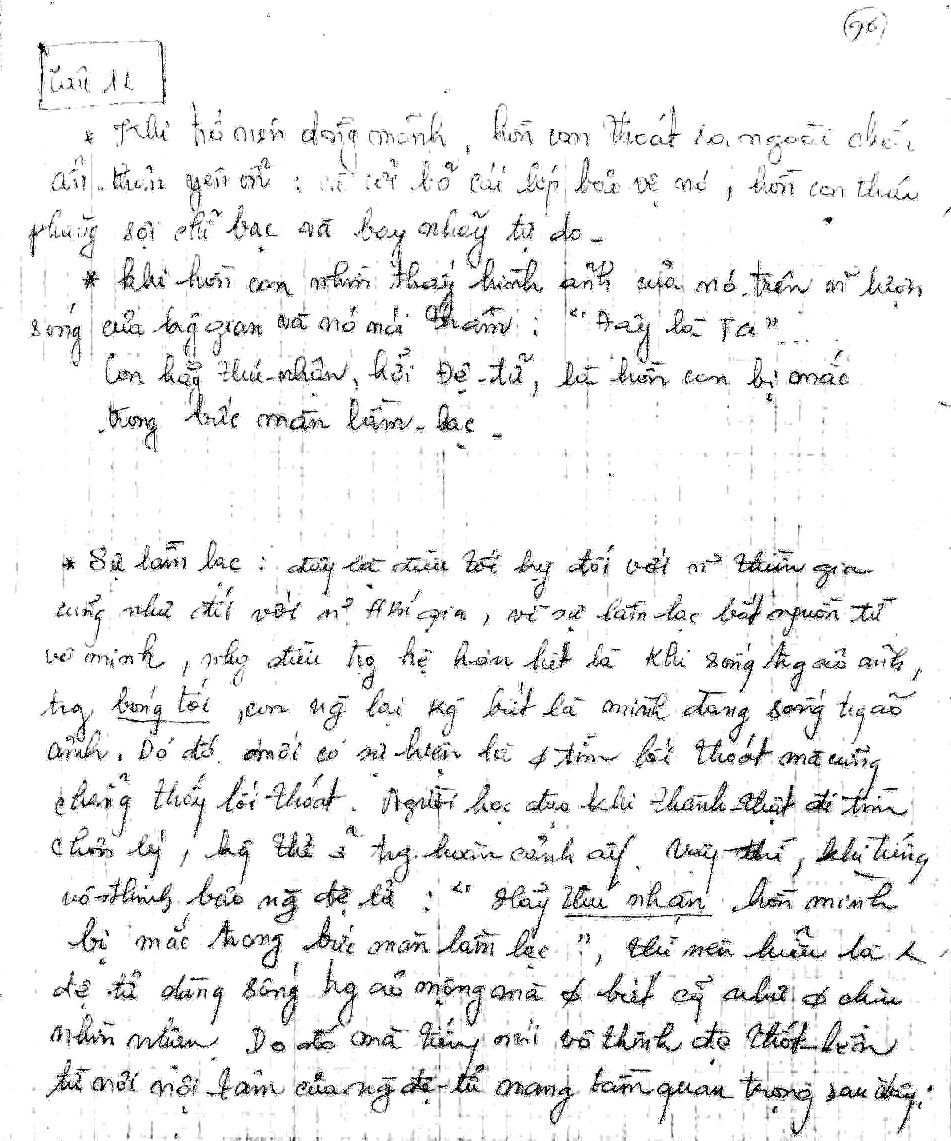 96
Câu 12
* Khi trở nên dạng mảnh, hồn con thoát ra ngoài chốn
ẩn-thân yên ổn : cởi bỏ cái lớp bảo vệ nó, hồn con
phăng sợi chỉ bạc và bay nhảy tự do -
* khi hồn con nhìn thấy hình ảnh của nó trên n~ lượn
sóng của kg gian và nó nói thầm : "Đây là Ta"
Con hãy thú-nhận, hỡi Đệ-tử, là hồn con bị mắc
trong bức màn lầm-lạc -
* Sự lầm lạc : đây là điều tối kỵ đối với n~ thiền gia
cũng như đối với n~, vì sự lầm lạc bắt nguồn từ
vô minh, nhg điều tg hệ hơn hết là khi sống tg ảo ảnh,
trg bóng tối, con ng lại kg biết là mình đang sống tg ảo
ảnh. Do đó mới có sự kiện là ∅ tìm lối thoát mà cũng
chẳng thấy lối thoát. Người học đạo khi thành-thật đi tìm
chơn lý, kg thể ở tg hoàn cảnh ấy. Vậy thì, khi tiếng
vô-thinh bảo ng đệ tử : "Hãy thú nhận hồn mình
bị mắc trong bức màn lầm lạc", thì nên hiểu là
đệ tử đang sống tg ảo mộng mà ∅ biết cg như ∅ chịu
nhìn nhận. Do đó mà tiếng nói vô thinh đã thốt lên
từ nơi nội-tâm của ng đệ-tử mang tầm quan trọng sau đây: